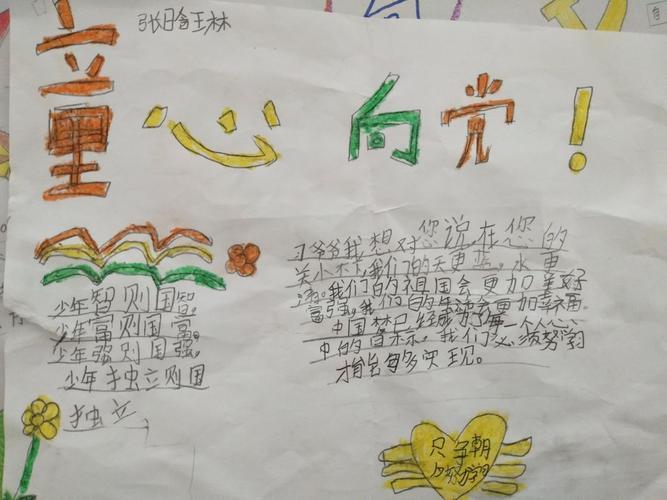 张晗王林
童心向党!
少年智则国智。
少年富则国富。
少年强则国强。
少年独立则国
独立
习爷爷我想对您说,在您的
关小下,我们的天更蓝。水更
清。我们的祖国会更加美好
富强,我们的生活会更加幸福。
中国梦已经成为了每一个人心
中的目标。我们必须努学
才能够实现。
只争朝
夕努学